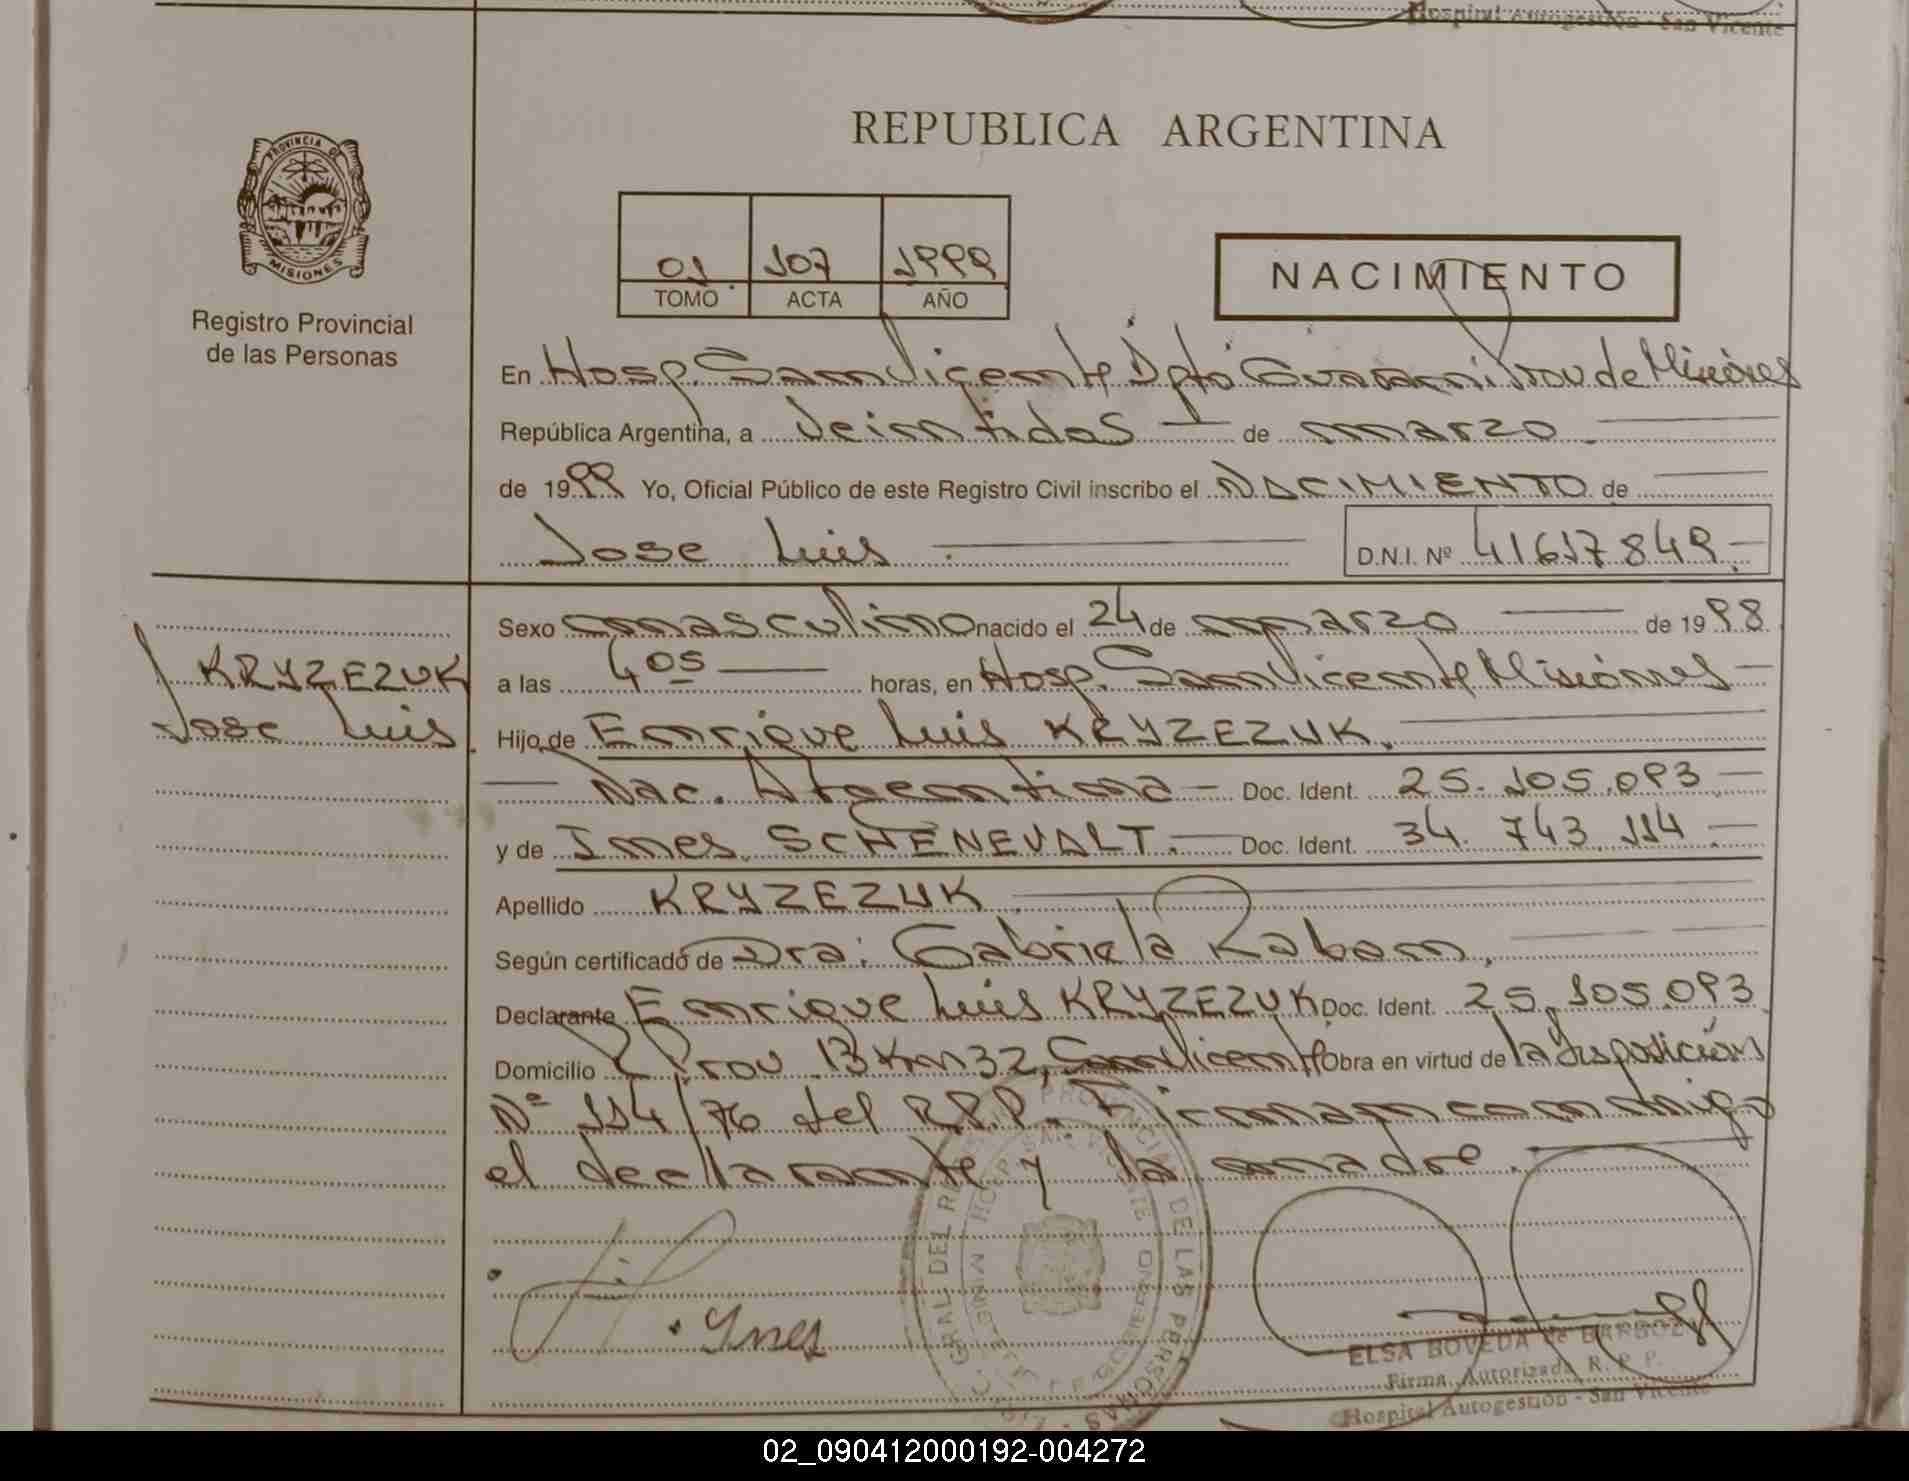 Hospital Autogestión - San Vicente
PROVINCIA DE
MISIONES
Registro Provincial
de las Personas
REPUBLICA ARGENTINA
01 107 1999
TOMO ACTA AÑO
NACIMIENTO
En Hosp. San Vicente Dpto Guarani Prov de Misiones
República Argentina, a Veintidos de marzo
de 1999 Yo, Oficial Público de este Registro Civil inscribo el NACIMIENTO de
Jose Luis D.N.I. Nº 41617849
KRYZEZUK
Jose Luis
Sexo masculino nacido el 24 de marzo de 1998
a las 4 05 horas, en Hosp. San Vicente Misiones
Hijo de Enrique Luis KRYZEZUK.
Nac. Argentina Doc. Ident. 25.105.093
y de Ines SCHENEVALT. Doc. Ident. 34.743.114
Apellido KRYZEZUK
Según certificado de Dra: Gabriela Raban,
Declarante Enrique Luis KRYZEZUK Doc. Ident. 25.105.093
Domicilio Prov 13 Km 32, San Vicente Obra en virtud de la disposición
Nº 114/76 del R.P.P. Firman conmigo
el declarante y la madre.
Ynes
GRAL DEL REGISTRO PROVINCIAL DE LAS PERSONAS
HOSP. SAN VICENTE
ELSA BOVEDA de BARBOZA
Firma Autorizada R. P. P.
Hospital Autogestión - San Vicente
02_090412000192-004272